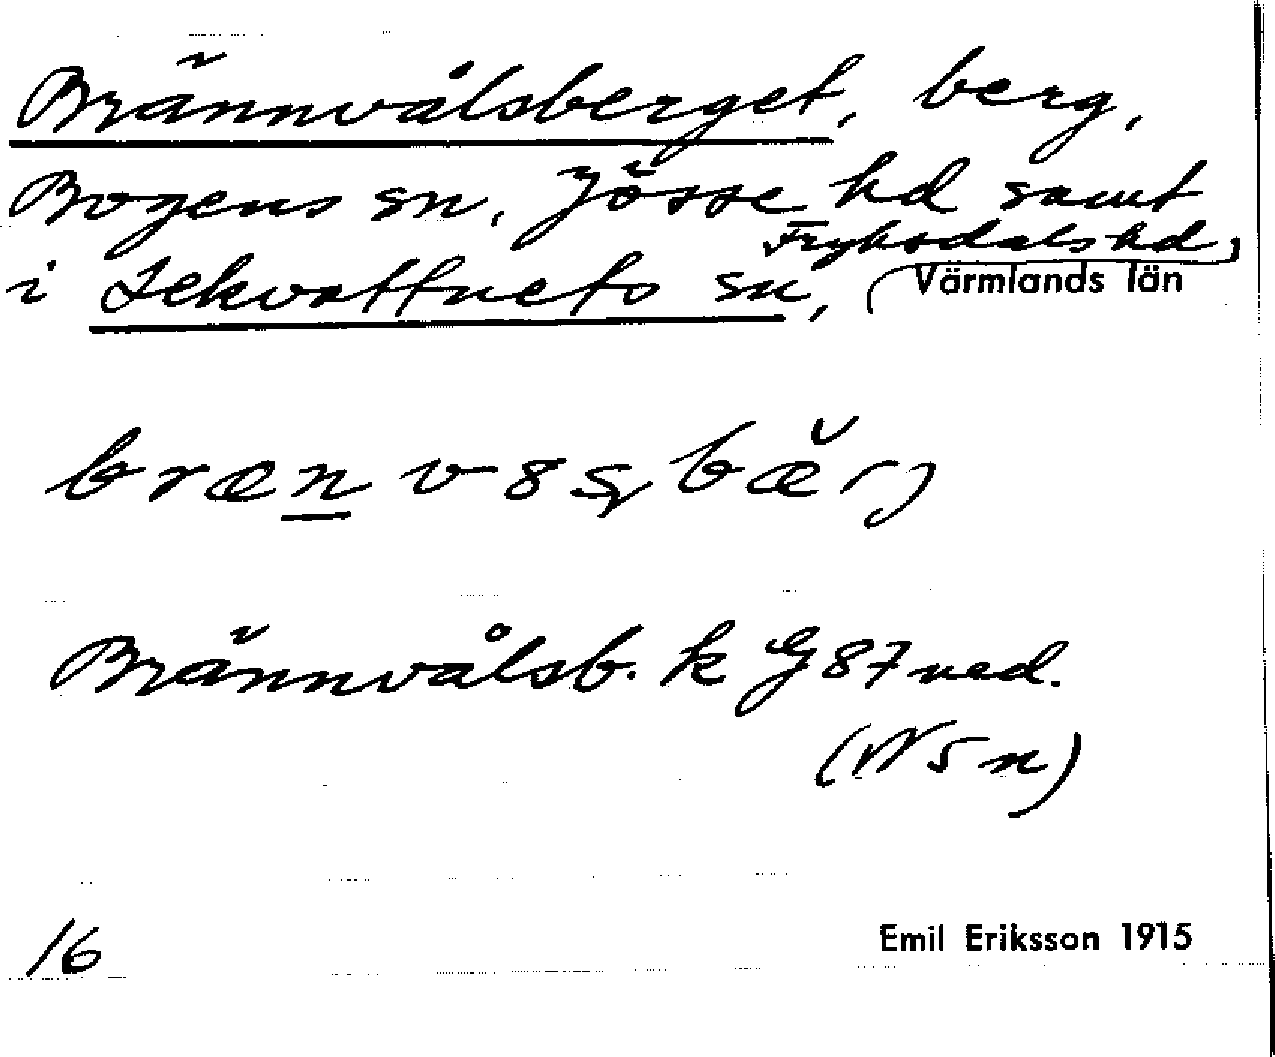 Brännvålsberget, berg,
Bogens sn, Jösse hd samt
i Lekvattnets sn, Fryksdals hd, Värmlands län
Brännvålsb. k G 87 ned.
(W 5 n)
16
Emil Eriksson 1915